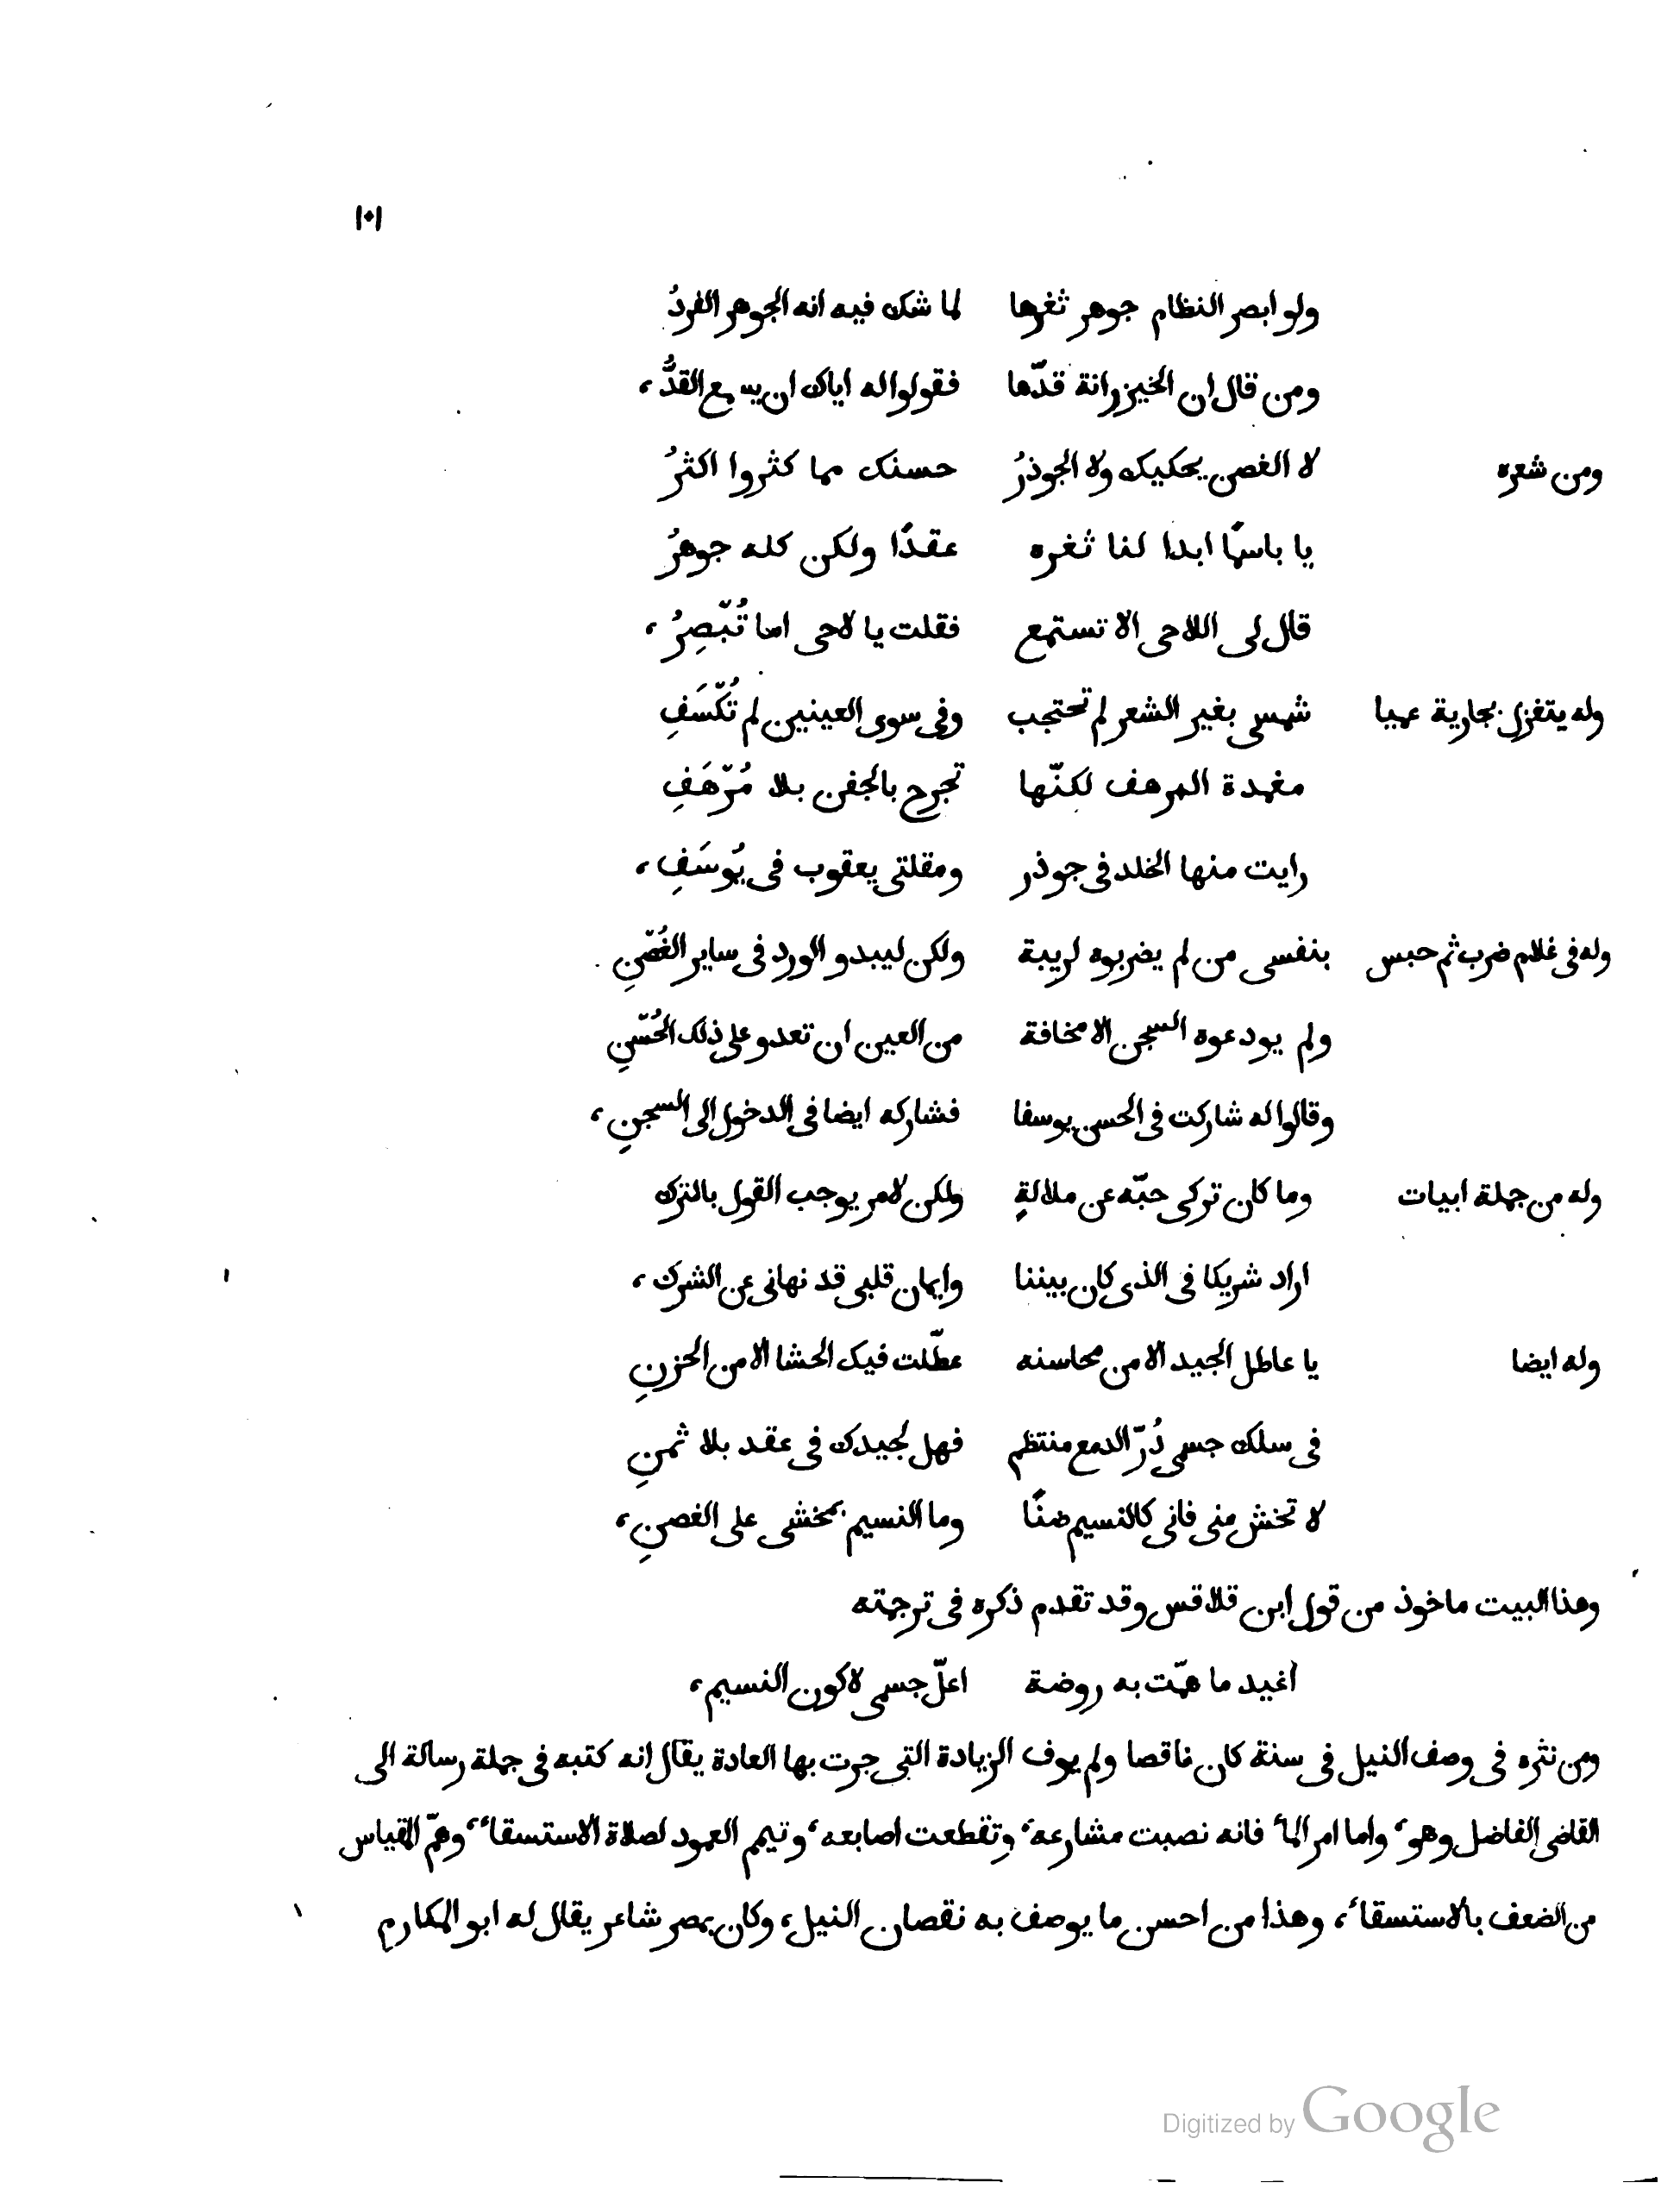 ١٠١
ولو ابصر النظام جوهر ثغرها لما شك فيه انه الجوهر الفردُ
ومن قال ان الخيزرانة قدّها فقولوا له اياك ان يسمع القدُّ،
ومن شعره لا الغصن يحكيك ولا الجوذرُ حسنك مما كثروا اكثرُ
يا باسمًا ابدا لنا ثغره عقدًا ولكن كله جوهرُ
قال لى اللاحى الا تستمع فقلت يا لاحى اما تُبْصِرُ،
وله يتغزل بجارية عميا شمس بغير الشعر لم تحتجب وفى سوى العينين لم تُكْسَفِ
مغمدة المرهف لكنّها تجرح بالجفن بلا مُرْهَفِ
رايت منها الخلد فى جوذر ومقلتى يعقوب فى يُوسَفِ،
وله فى غلام ضرب ثم حبس بنفسى من لم يضربوه لريبة ولكن ليبدو الورد فى ساير الغُصْنِ
ولم يودعوه السجن الا مخافة من العين ان تعدو على ذلك الحُسْنِ
وقالوا له شاركت فى الحسن يوسفا فشاركه ايضا فى الدخول الى السجنِ،
وله من جملة ابيات وما كان تركى حبّه عن ملالةٍ ولكن لامر يوجب القول بالترك
اراد شريكا فى الذى كان بيننا وايمان قلبى قد نهانى عن الشرك،
وله ايضا يا عاطل الجيد الا من محاسنه عطّلت فيك الحشا الا من الحزنِ
فى سلك جسمى دُرّ الدمع منتظم فهل لجيدك فى عقد بلا ثمنِ
لا تخش منى فانى كالنسيم ضنًا وما النسيم بمخشى على الغصنِ،
وهذا البيت ماخوذ من قول ابن قلاقس وقد تقدم ذكره فى ترجمته
اغيد ما همّت به روضة اعلّ جسمى لاكون النسيم،
ومن نثره فى وصف النيل فى سنة كان ناقصا ولم يوف الزيادة التى جرت بها العادة يقال انه كتبه فى جملة رسالة الى
القاضى الفاضل وهو، واما امر الماٴ فانه نصبت مشارعه، وتقطعت اصابعه، وتيمم العمود لصلاة الاستسقاٴ، وهمّ المقياس
من الضعف بالاستسقاٴ، وهذا من احسن ما يوصف به نقصان النيل، وكان بمصر شاعر يقال له ابو المكارم
Digitized by Google